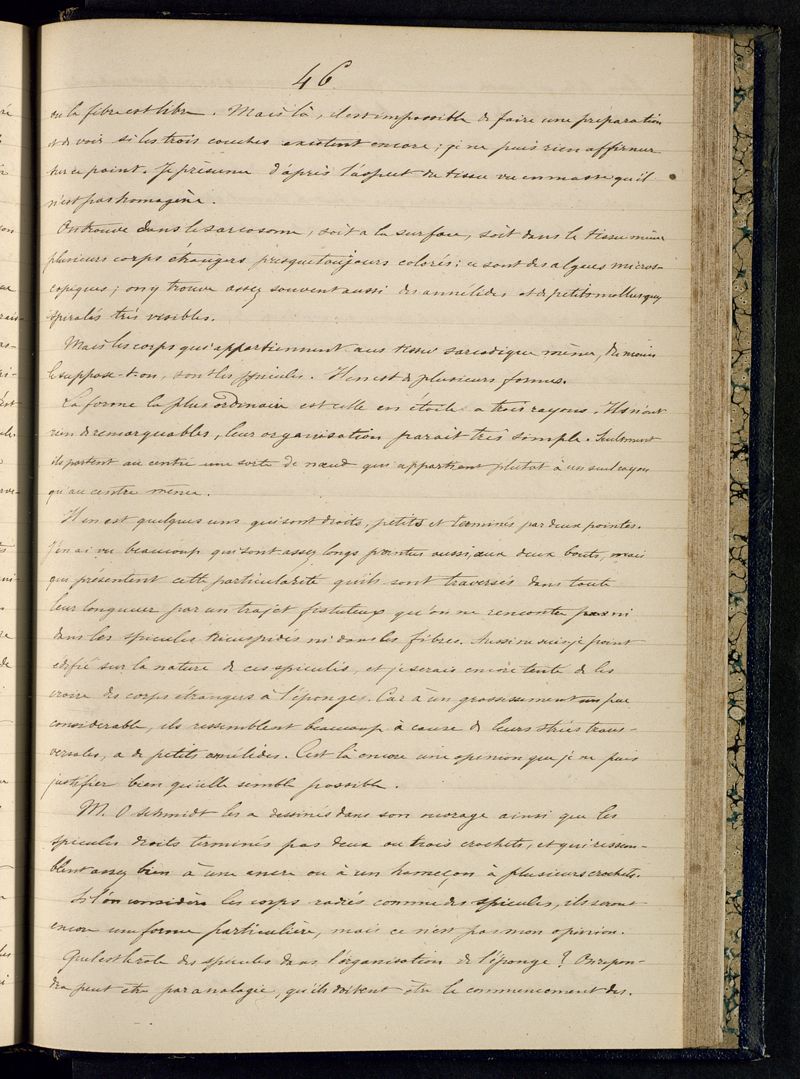 46
ou la fibre est libre. Mais là, il est impossible de faire une préparation
et de voir si les trois couches existent encore; je ne puis rien affirmer
sur ce point. Je présume d'après l'aspect du tissu vu en masse qu'il
n'est pas homogène.
On trouve dans le sarcosome, soit a la surface, soit dans le tissu même
plusieurs corps étrangers presque toujours colorés: ce sont des algues micros-
copiques; on y trouve assez souvent aussi des annélides et de petits mollusques
spiralés très visibles.
Mais les corps qui appartiennent au tissu sarcodique même, du moins
le suppose-t-on, sont les spicules. Il en est de plusieurs formes.
La forme la plus ordinaire est celle en étoile a trois rayons. Ils n'ont
rien de remarquables, leur organisation parait très simple. Seulement
ils portent au centre une sorte de nœud qui appartient plutot à un seul rayon
qu'au centre même.
Il en est quelques uns qui sont droits, petits et terminés par deux pointes.
J'en ai vu beaucoup qui sont assez longs pointus aussi aux deux bouts, mais
qui présentent cette particularité qu'ils sont traversés dans toute
leur longueur par un trajet fistuleux qu'on ne rencontre pas ni
dans les spicules tricuspides ni dans les fibres. Aussi ne suis-je point
édifié sur la nature de ces spicules, et je serais encore tenté de les
croire des corps étrangers à l'éponge. Car à un grossissement un peu
considérable, ils ressemblent beaucoup à cause de leurs stries trans-
versales, a de petits annélides. C'est là encore une opinion que je ne puis
justifier bien qu'elle semble possible.
M. O schmidt les a dessinés dans son ouvrage ainsi que les
spicules droits terminés pas deux ou trois crochets, et qui ressem-
blent assez bien à une ancre ou à un hameçon à plusieurs crochets.
Si l'on considère les corps radiés comme des spicules, ils seront
encore une forme particulière, mais ce n'est pas mon opinion.
Quel est le rôle des spicules dans l'organisation de l'éponge? On repon-
dra peut etre par analogie, qu'ils doivent être le commencement des